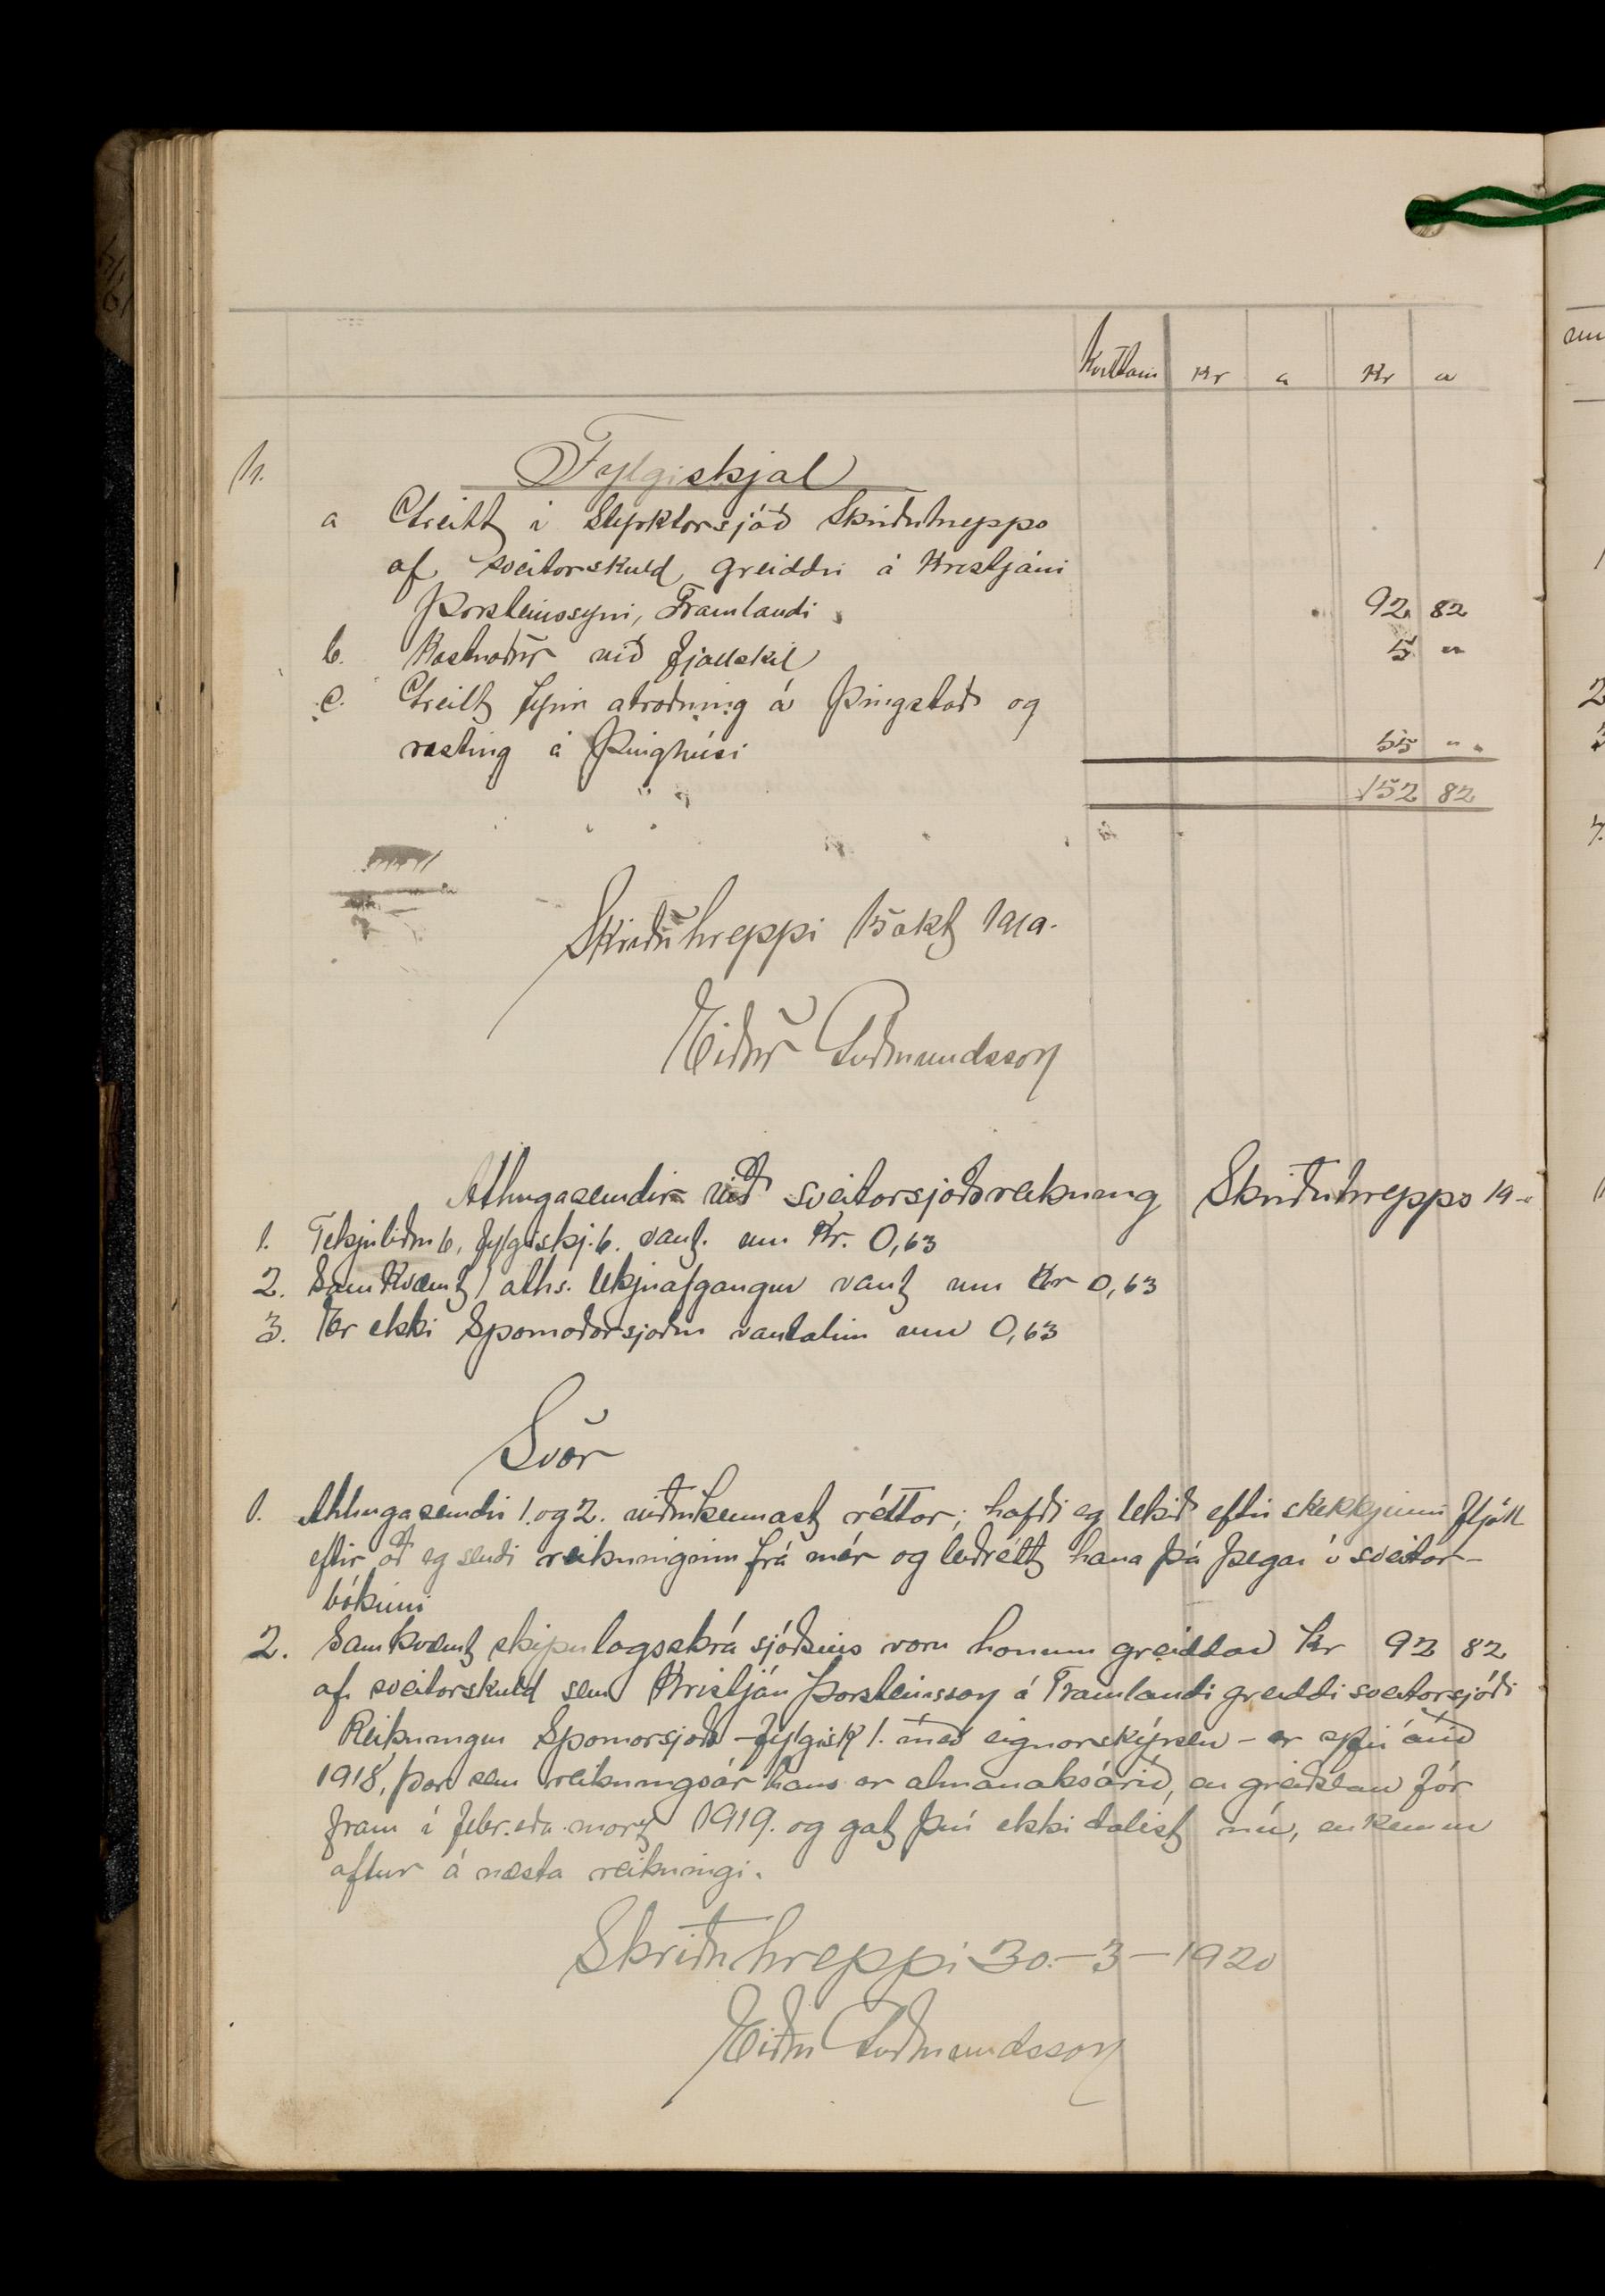 Kr a Kr a
h. Fylgiskjal
a Greitt í Styrktarsjóð Skriðuhrepps
af sveitarskuld greiddri á Kristjáni
Þorsteinssyni, Framlandi 92 82
b. Kostnaður við fjallskil 5 "
c. Greitt fyrir átroðning á þingstað og
ræsting á þinghúsi 55 "
152 82
Skriðuhreppi 15 okt 1919.
Eiður Guðmundsson
Athugasemdir við sveitarsjóðsreikning Skriðuhrepps 19
1. Tekjuliður 6, fylgiskj. 6. vant. um Kr. 0,63
2. Samkvæmt 1 aths. tekjuafgangur vant um Kr 0,63
3. Er ekki Sparnaðarsjóður vantalinn um 0,63
Svör
1. Athugasemdir 1. og 2. viðurkennast réttar; hafði eg tekið eftir skekkjunni fljótt
eftir að eg sendi reikninginn frá mér og leiðrétt hana þá þegar í sveitar-
bókinni
2. Samkvæmt skipulagsskrá sjóðsins voru honum greiddar kr 92 82
af sveitarskuld sem Kristján Þorsteinsson á Framlandi greiddi sveitarsjóði
Reikningur Spornarsjóðs - fylgisk 1. með eignarskýrslu - er yfir árið
1918, þar sem reikningsár hans er almanaksárið, en greiðslan fór
fram í febr. eða marz 1919. og gat því ekki talist nú, en kemur
aftur á næsta reikningi.
Skriðuhreppi 30.-3-1920
Eiður Guðmundsson